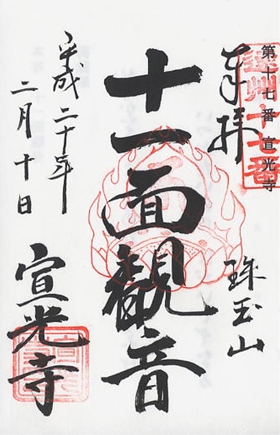 第十七番 宣光寺
遠州十七番
奉拝
珠玉山
十一面観音
平成二十年
二月十日
宣光寺